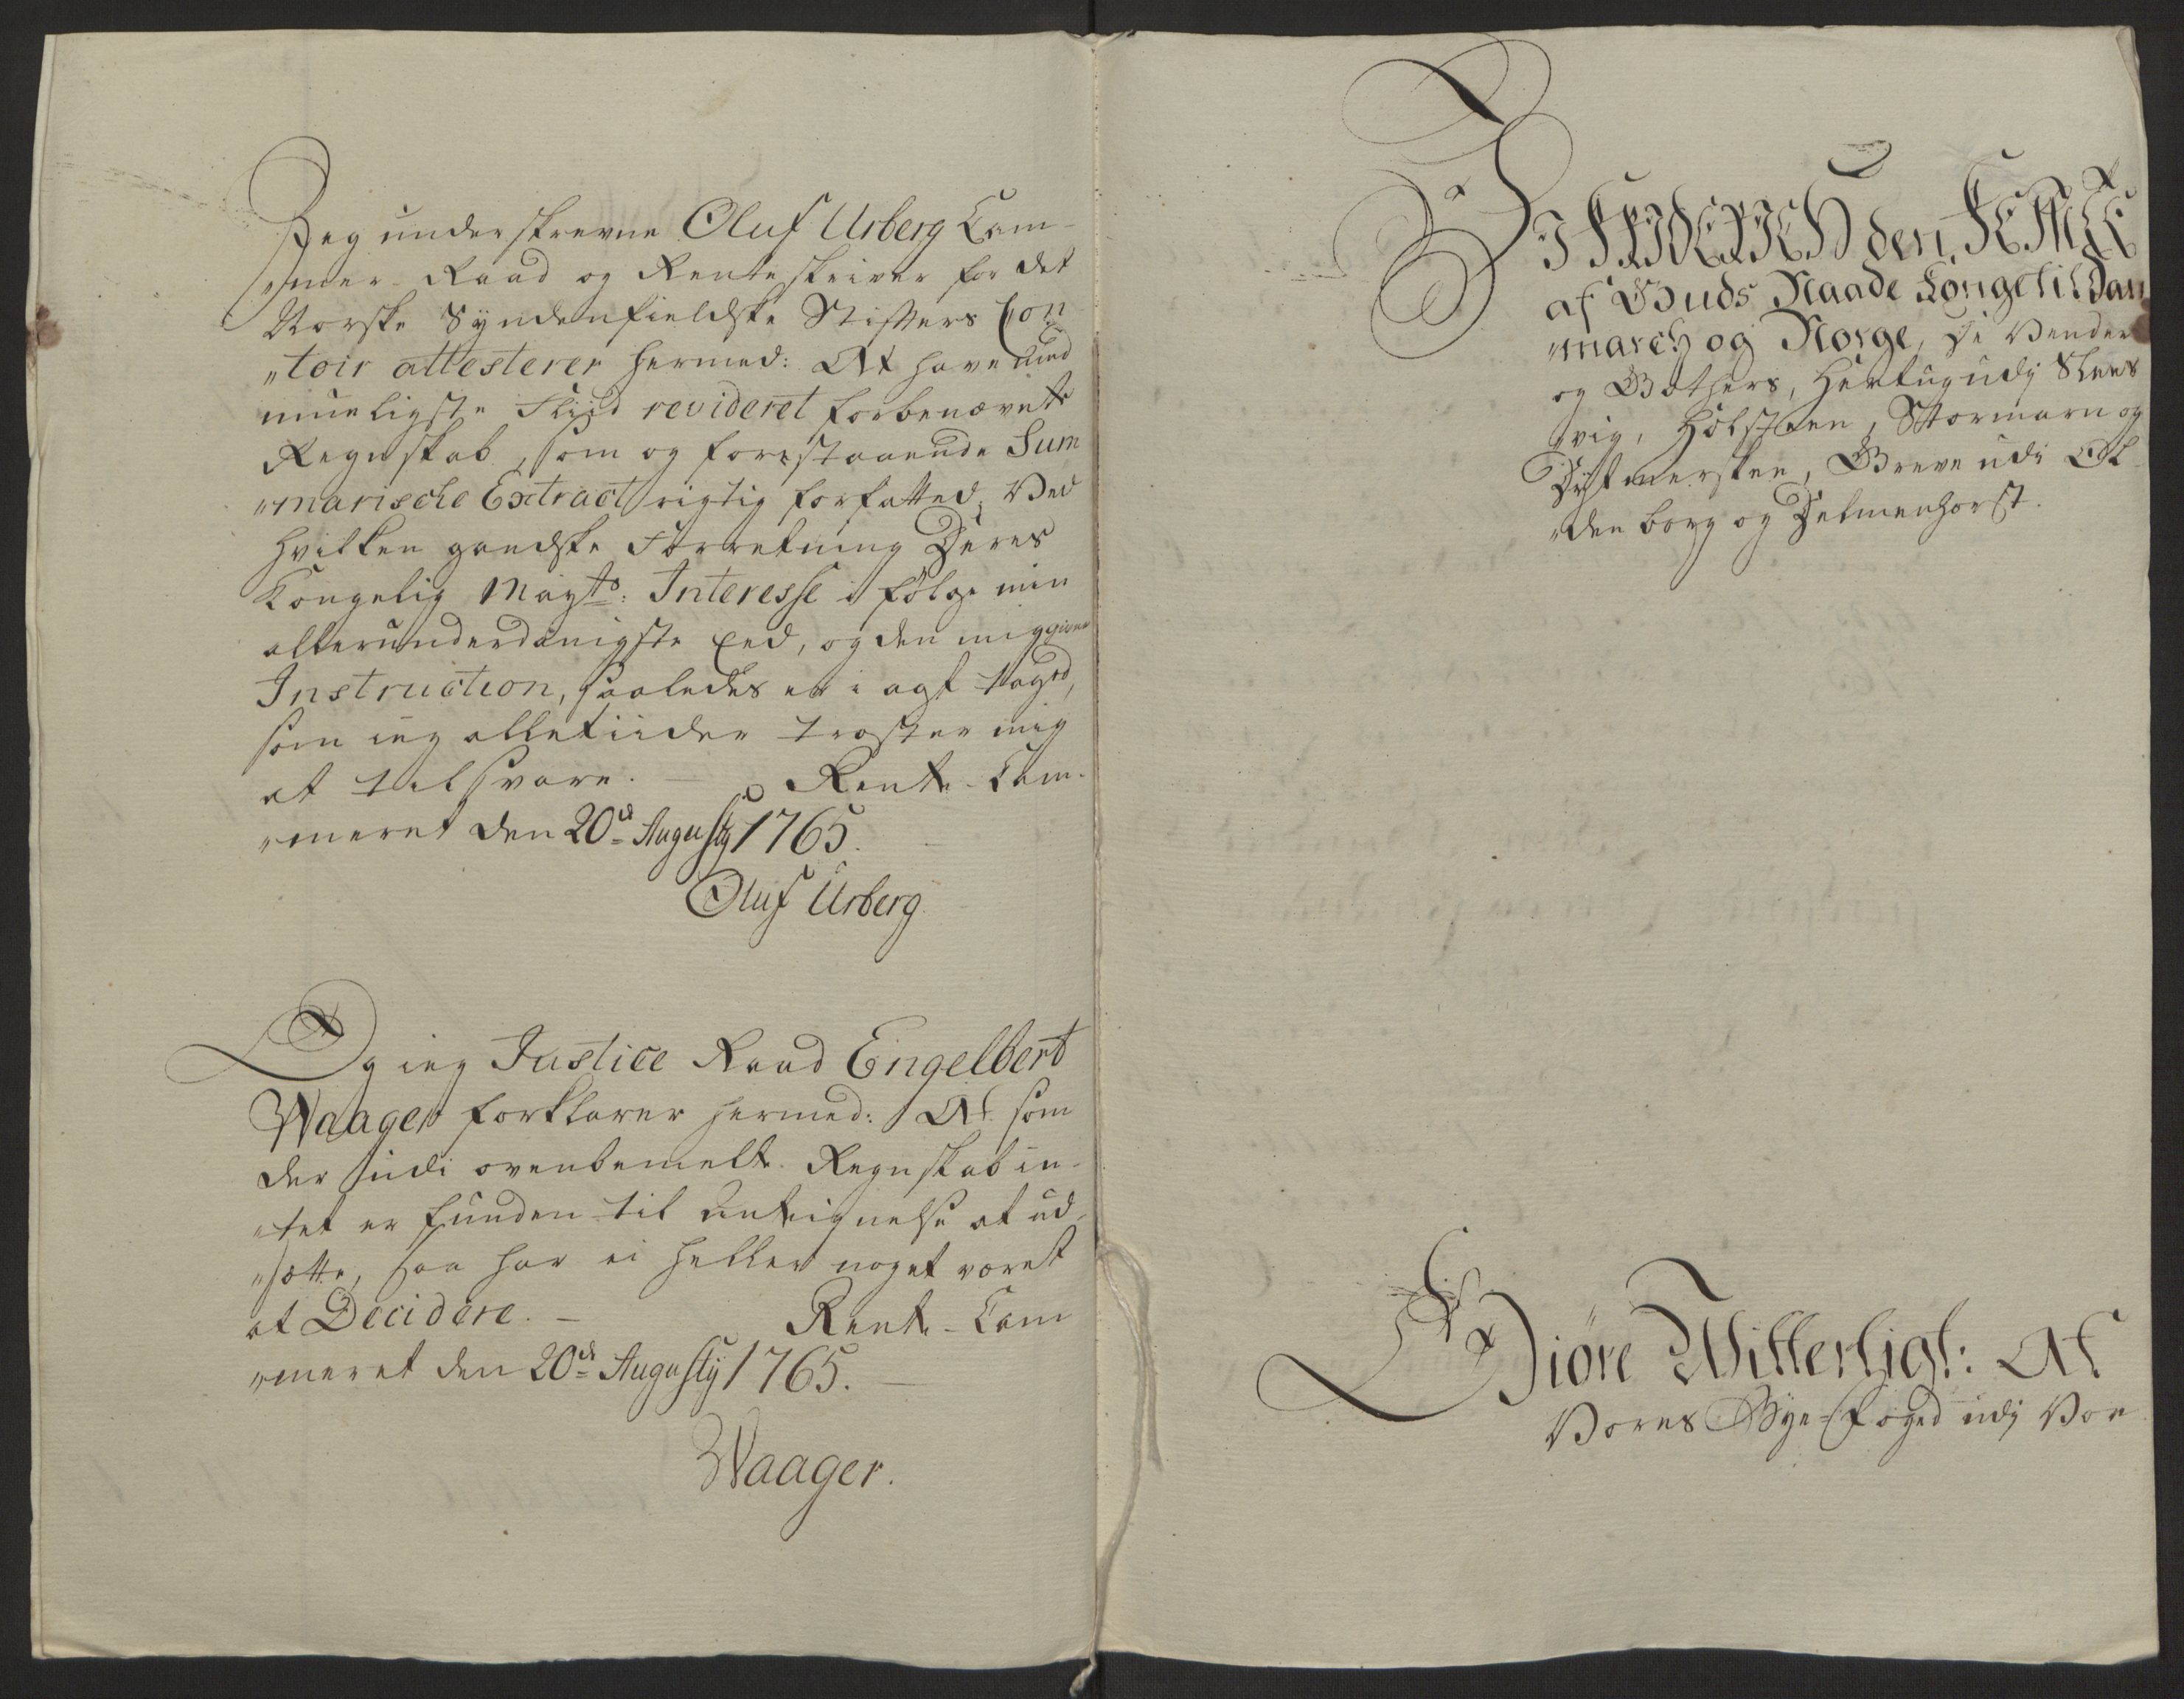 Jeg underskrevne Oluf Urberg Cam-
„mer-Raad og Renteskriver for det
Norske Syndenfieldske Stifters Con
„toir attesterer hermed: At have med
mueligste Fliid revideret forbenævnte
Regnskab, som og forestaaende Sum
„marische Extract rigtig forfatted, Ved
hvilken gandske Forretning Deres
Kongelig Mayts: Interesse i følge min
allerunderdanigste Eed, og den mig givne
Instruction, saaledes er i agt taged,
som ieg alletiider trøster mig
at tilsvare. — Rente-Cam-
„meret den 20de Augusty 1765.
Oluf Urberg
Og ieg Justice Raad Engelbert
Waager forklarer hermed: At som
der udi ovenbemelte Regnskab in-
„tet er funden til Antegnelse at ud-
„sætte, saa har ei heller noget været
at Decidere. — Rente-Cam
„meret den 20de Augusty 1765. —
Waager.
Vi FRIDERICH den FEMTE
af Guds Naade Konge til Dan
„march og Norge, De Venders
og Gothers, Hertug udj Slees
„vig, Holsteen, Stormarn og
Dytmersken, Greve udi Ol-
„denborg og Delmenhorst.
Giöre Witterligt: At
Vores Bye-Foged udj Vor